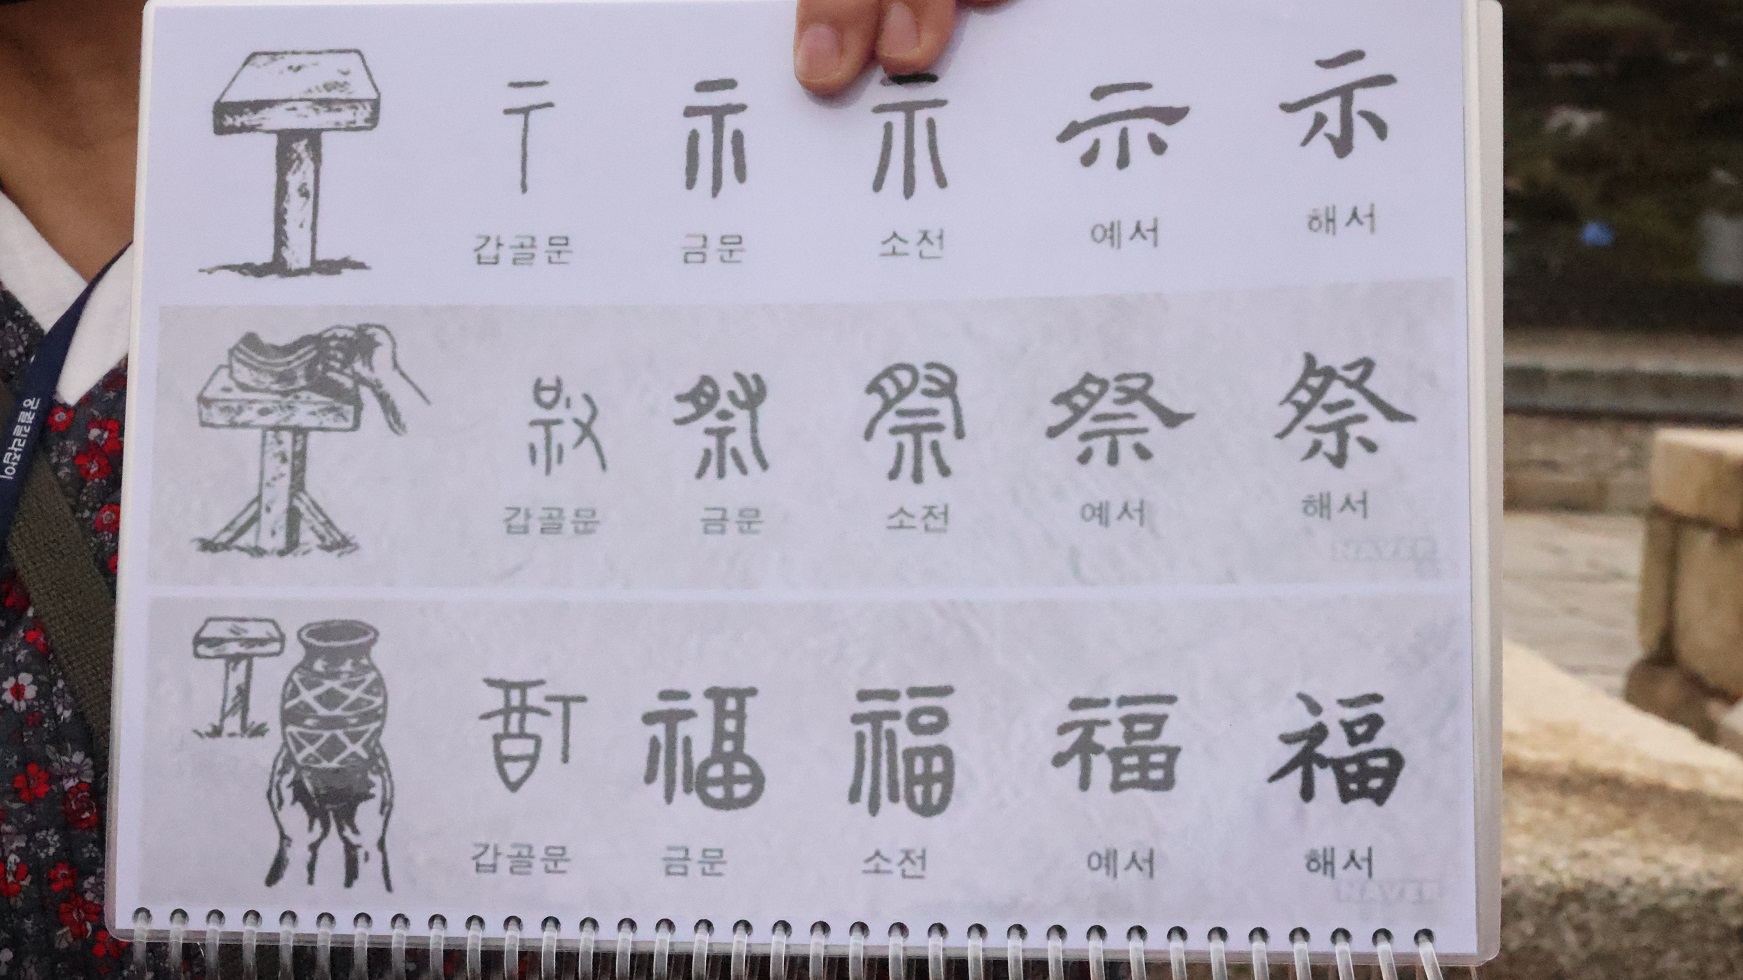 示 示 示 示 示
갑골문 금문 소전 예서 해서
祭 祭 祭 祭 祭
갑골문 금문 소전 예서 해서
NAVER
福 福 福 福 福
갑골문 금문 소전 예서 해서
NAVER